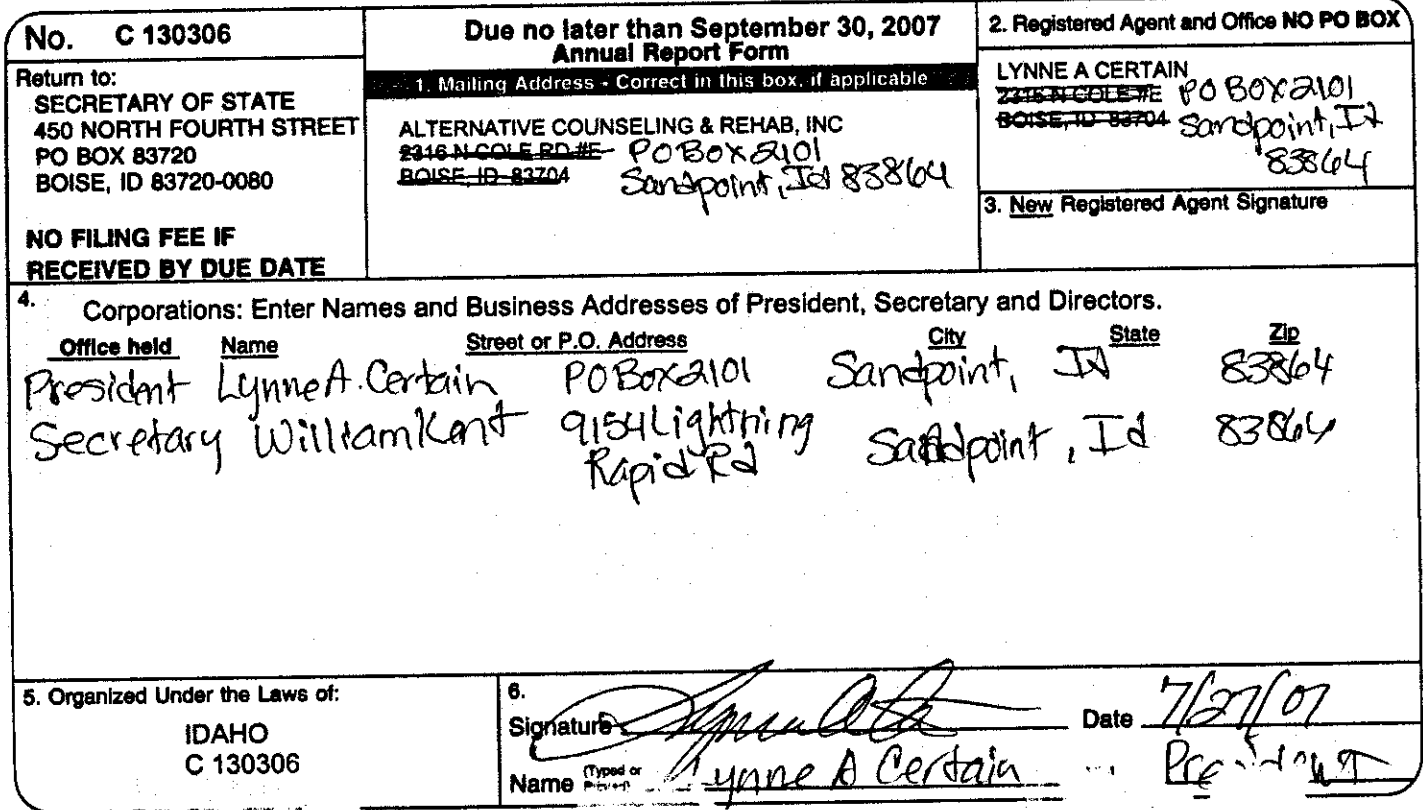 No. C 130306
Return to:
SECRETARY OF STATE
450 NORTH FOURTH STREET
PO BOX 83720
BOISE, ID 83720-0080
NO FILING FEE IF
RECEIVED BY DUE DATE
Due no later than September 30, 2007
Annual Report Form
1. Mailing Address - Correct in this box, if applicable
ALTERNATIVE COUNSELING & REHAB, INC
2316 N COLE RD #E PO BOX 2101
BOISE, ID 83704 Sandpoint, Id 83864
2. Registered Agent and Office NO PO BOX
LYNNE A CERTAIN
2316 N COLE #E PO BOX 2101
BOISE, ID 83704 Sandpoint, Id
83864
3. New Registered Agent Signature
4. Corporations: Enter Names and Business Addresses of President, Secretary and Directors.
Office held Name Street or P.O. Address City State Zip
President Lynne A. Certain PO Box 2101 Sandpoint, Id 83864
Secretary William Kent 9154 Lightning Sandpoint, Id 83864
Rapid Rd
5. Organized Under the Laws of:
IDAHO
C 130306
6.
Signature Date 7/27/07
Name (Typed or Lynne A Certain President